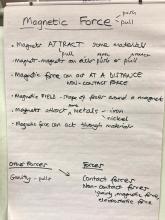 Magnetic Force
push
pull
• Magnet ATTRACT some materials
pull
• Magnet-magnet can either push or pull
• Magnetic force can act AT A DISTANCE
NON-CONTACT FORCE
• Magnetic FIELD - range of force around a magnet
• Magnets attract metals - iron
nickel
• Magnetic force can act through materials
Other Forces
Gravity - pulls
Forces
Contact forces
Non-contact forces
gravity magnetic force
electrostatic force